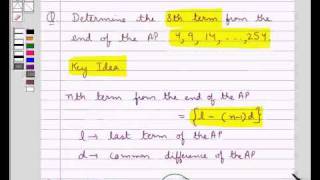 Q Determine the 8th term from the
end of the AP 4, 9, 14, ..., 254.
Key Idea
nth term from the end of the AP
= {l - (n-1)d}
l → last term of the AP
d → common difference of the AP